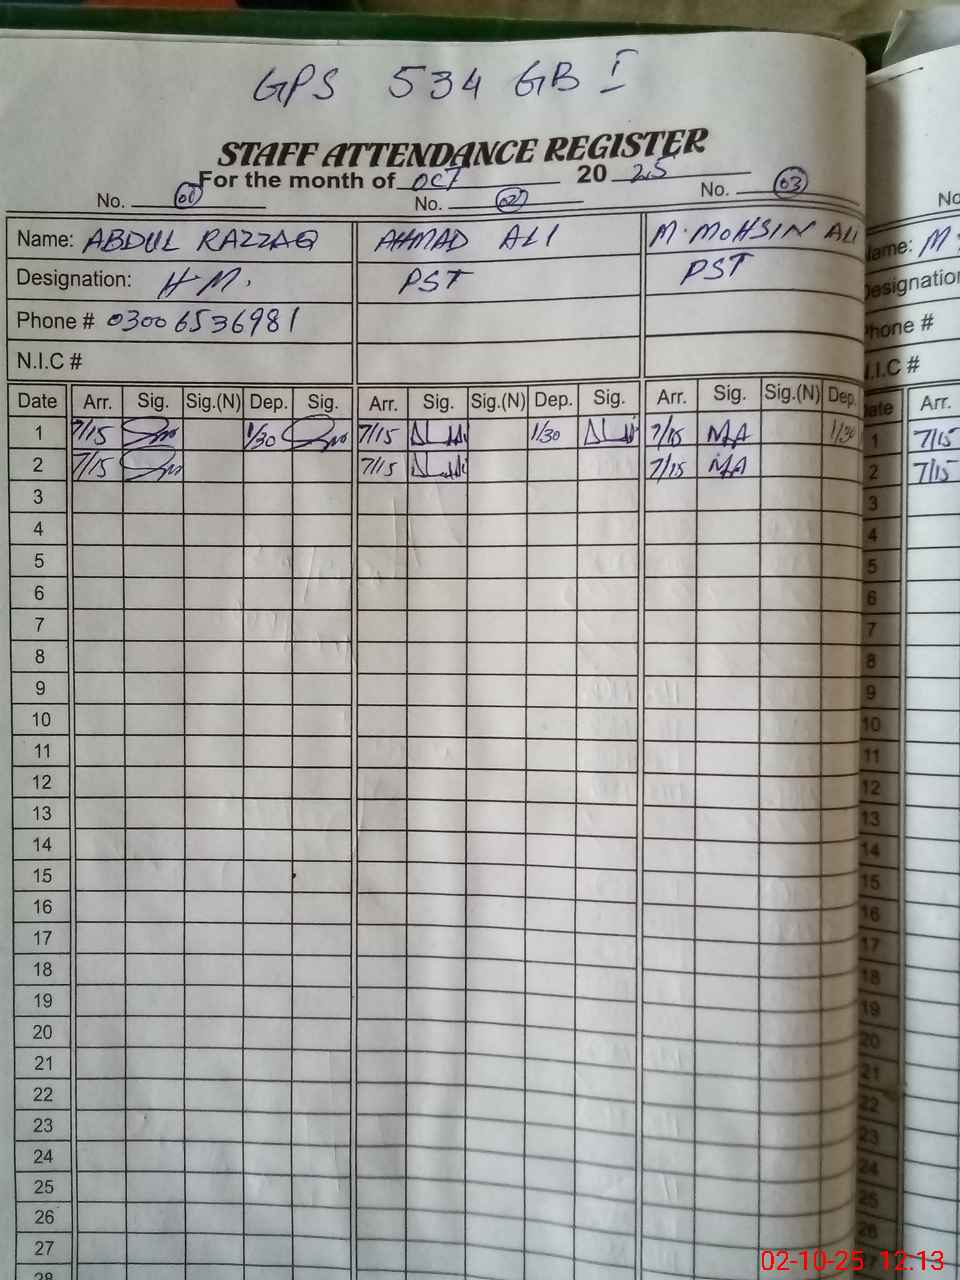 GPS 534 GB I
STAFF ATTENDANCE REGISTER
For the month of OCT 2025
No. 01 No. 02 No. 03 No
Name: ABDUL RAZZAQ AHMAD ALI M. MOHSIN ALI Name: M
Designation: H.M. PST PST Designation
Phone # 03006536981 Phone #
N.I.C # N.I.C #
Date Arr. Sig. Sig.(N) Dep. Sig. Arr. Sig. Sig.(N) Dep. Sig. Arr. Sig. Sig.(N) Dep. Date Arr.
1 7/15 1/30 7/15 1/30 7/15 MA 1/30 1 7/15
2 7/15 7/15 7/15 MA 2 7/15
3 3
4 4
5 5
6 6
7 7
8 8
9 9
10 10
11 11
12 12
13 13
14 14
15 15
16 16
17 17
18 18
19 19
20 20
21 21
22 22
23 23
24 24
25 25
26 26
27
28
02-10-25 12:13